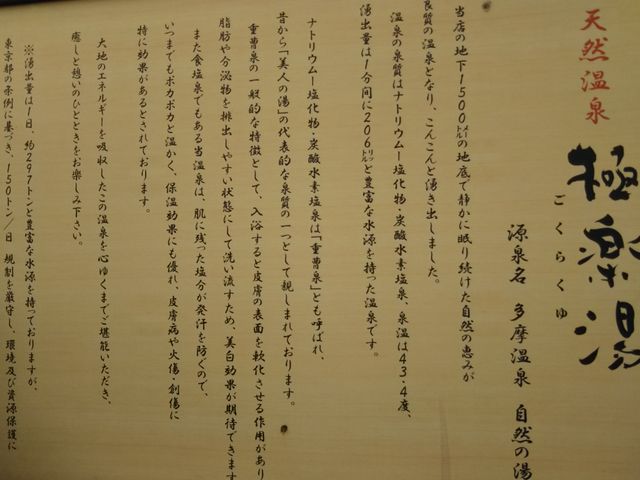 天然温泉
極楽湯
ごくらくゆ
源泉名 多摩温泉 自然の湯
当店の地下1500㍍の地底で静かに眠り続けた自然の恵みが
良質の温泉となり、こんこんと湧き出しました。
温泉の泉質はナトリウムー塩化物・炭酸水素塩泉、泉温は43・4度、
湧出量は1分間に206㍑と豊富な水源を持った温泉です。
ナトリウムー塩化物・炭酸水素塩泉は「重曹泉」とも呼ばれ、
昔から「美人の湯」の代表的な泉質の一つとして親しまれております。
重曹泉の一般的な特徴として、入浴すると皮膚の表面を軟化させる作用があり
脂肪や分泌物を排出しやすい状態にして洗い流すため、美白効果が期待できます
また食塩泉でもある当温泉は、肌に残った塩分が発汗を防ぐので、
いつまでもポカポカと温かく、保温効果にも優れ、皮膚病や火傷・創傷に
特に効果があるとされております。
大地のエネルギーを吸収したこの温泉を心ゆくまでご堪能いただき、
癒しと憩いのひとときをお楽しみ下さい。
※湧出量は1日、約297トンと豊富な水源を持っておりますが、
東京都の条例に基づき、150トン/日 規制を厳守し、環境及び資源保護に